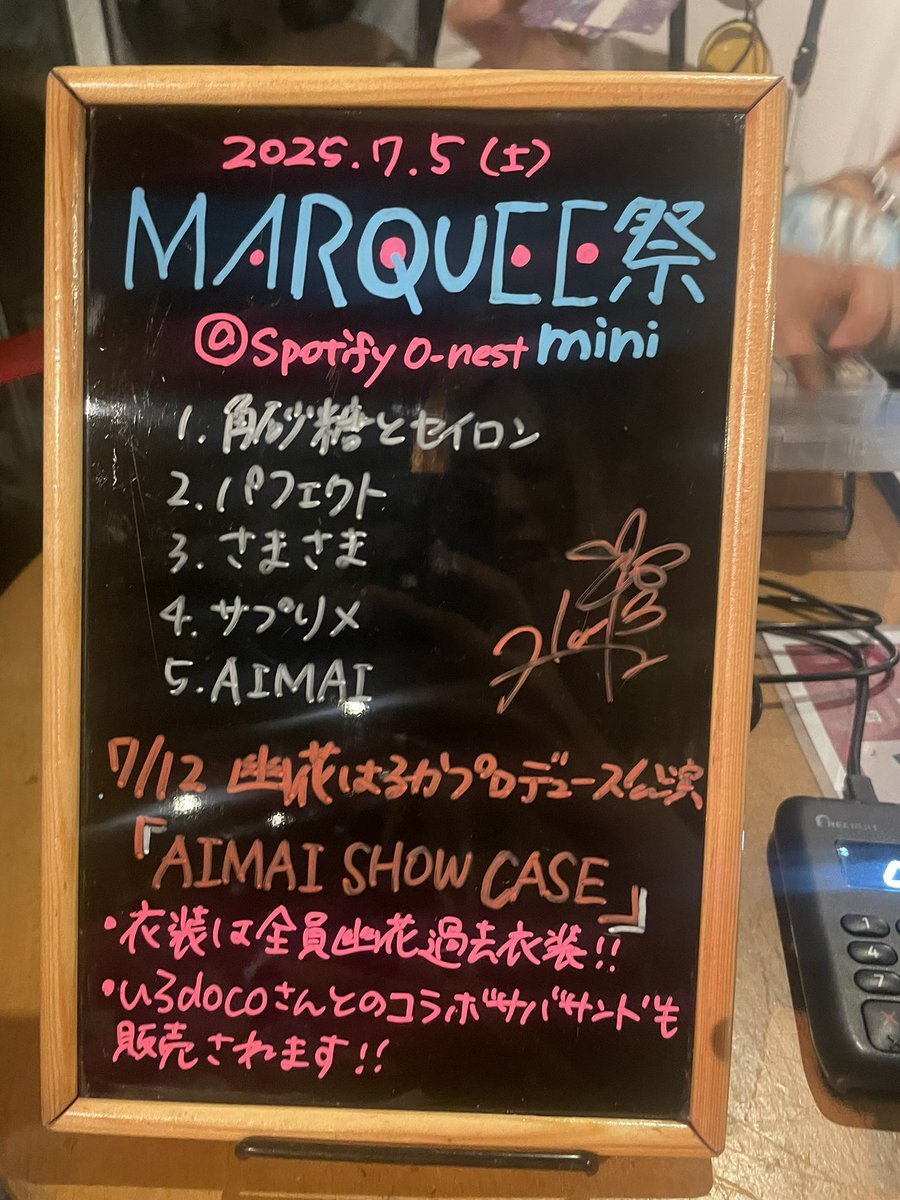 2025.7.5(土)
MARQUEE祭
@Spotify O-nest mini
1. 角砂糖とセイロン
2. パフェクト
3. さまさま
4. サプリメ
5. AIMAI
7/12 幽花はるかプロデュース公演
『AIMAI SHOW CASE』
・衣装は全員幽花過去衣装!!
・いろdocoさんとのコラボサバサンドも
販売されます!!
1
4
7